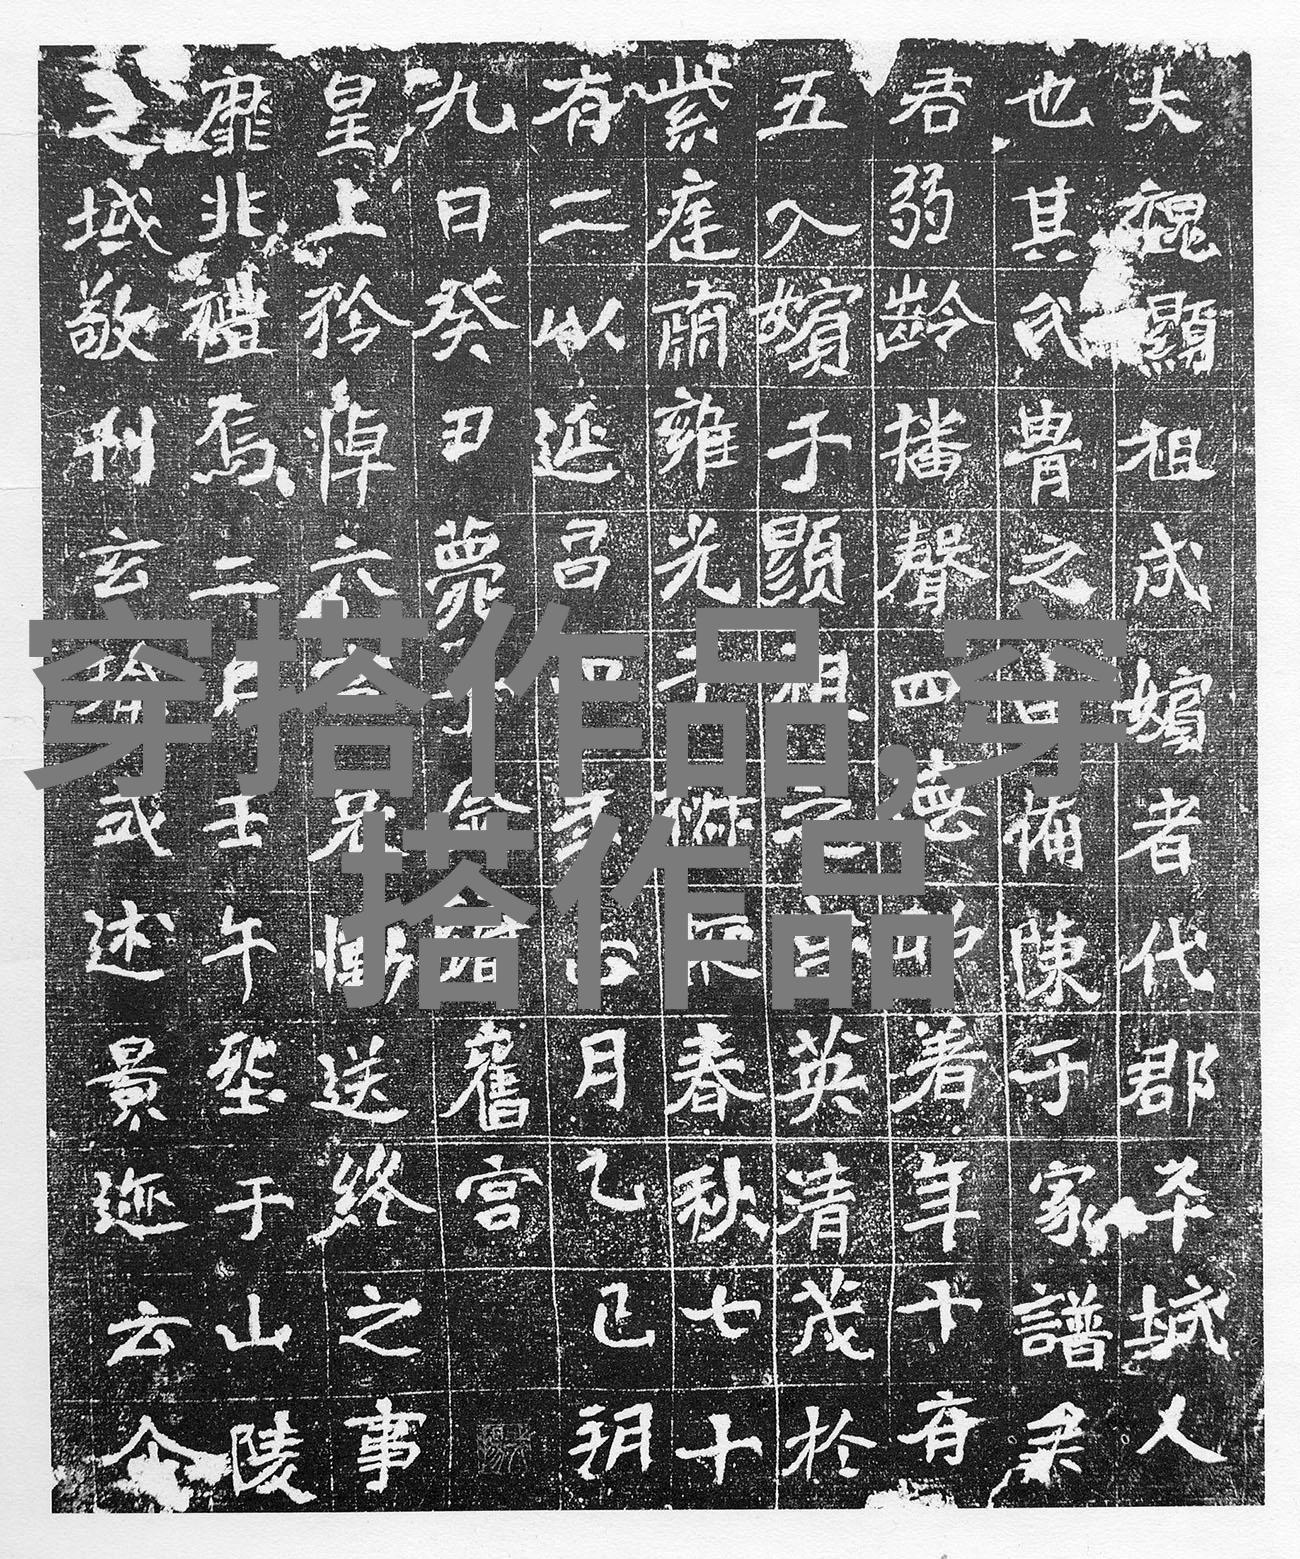 大魏顯祖成嬪者代郡平城人
也其氏胄之備陳于家譜
君弱齡播聲四德著年十有
五入嬪于顯祖之英清茂於
紫庭肅雍光于春秋七十
有二以延昌四年正月乙巳朔
九日癸丑薨于金墉舊宮
皇上矜悼六宮慟送終之事
靡非禮焉二月壬午塋于山陵
之域敬刊玄式述景迹云
穿搭作品,穿
搭作品